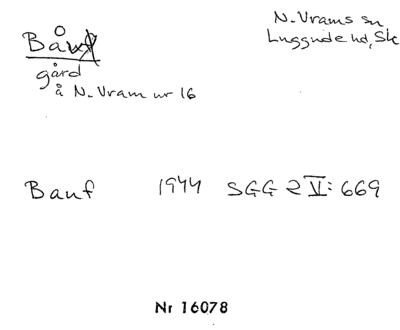 Båuf
N. Vrams sn
Luggude hd, Sk
gård
å N. Vram nr 16
Bauf 1944 SGG 2 V: 669
Nr 16078